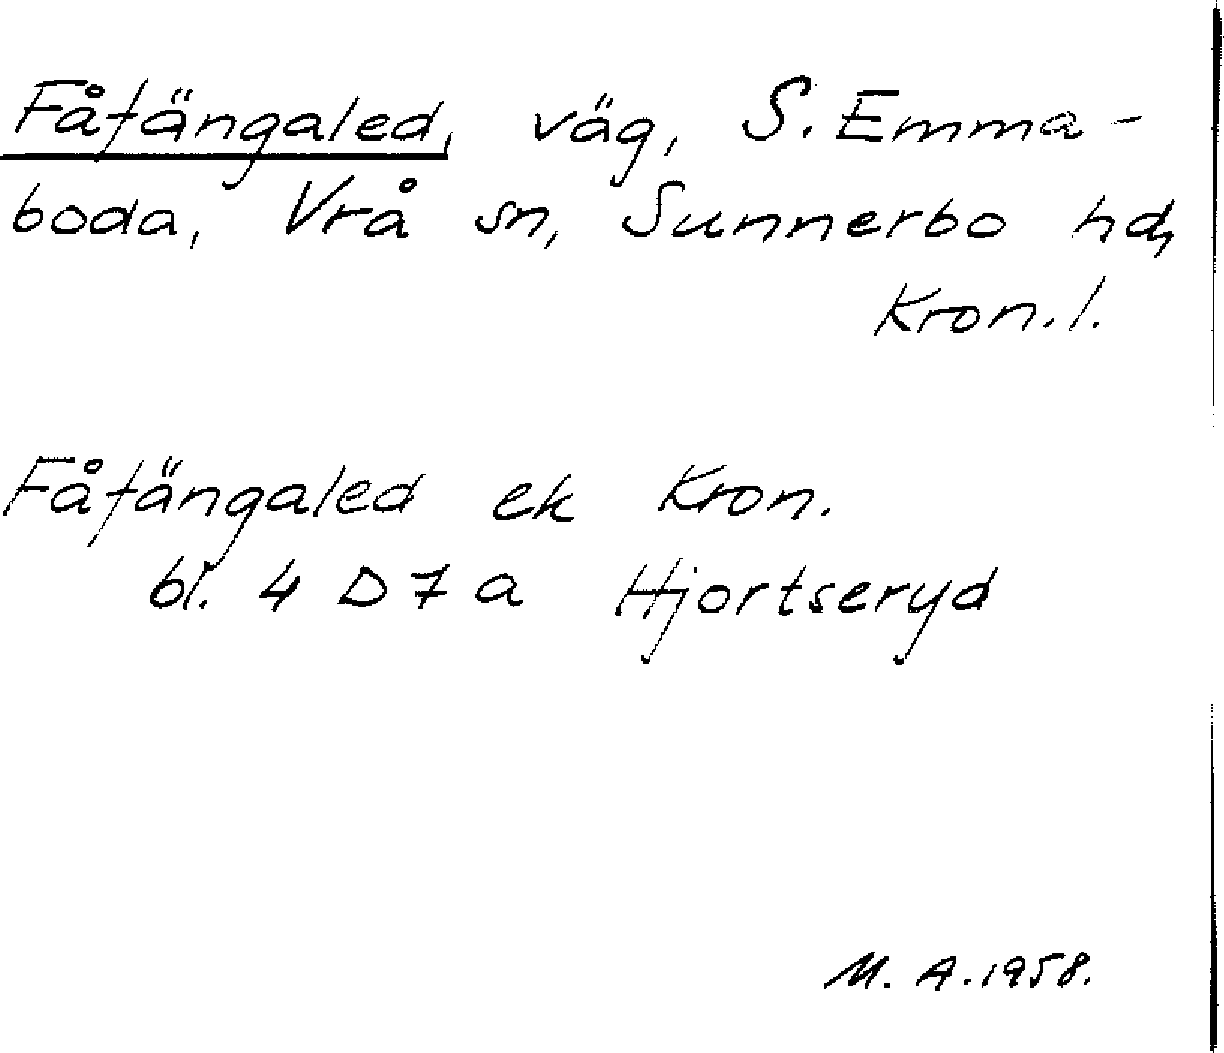 Fåfängaled, väg, S. Emma-
boda, Vrå sn, Sunnerbo hd,
Kron. l.
Fåfängaled ek Kron.
bl. 4 D 7 a Hjortseryd
M. A. 1958.